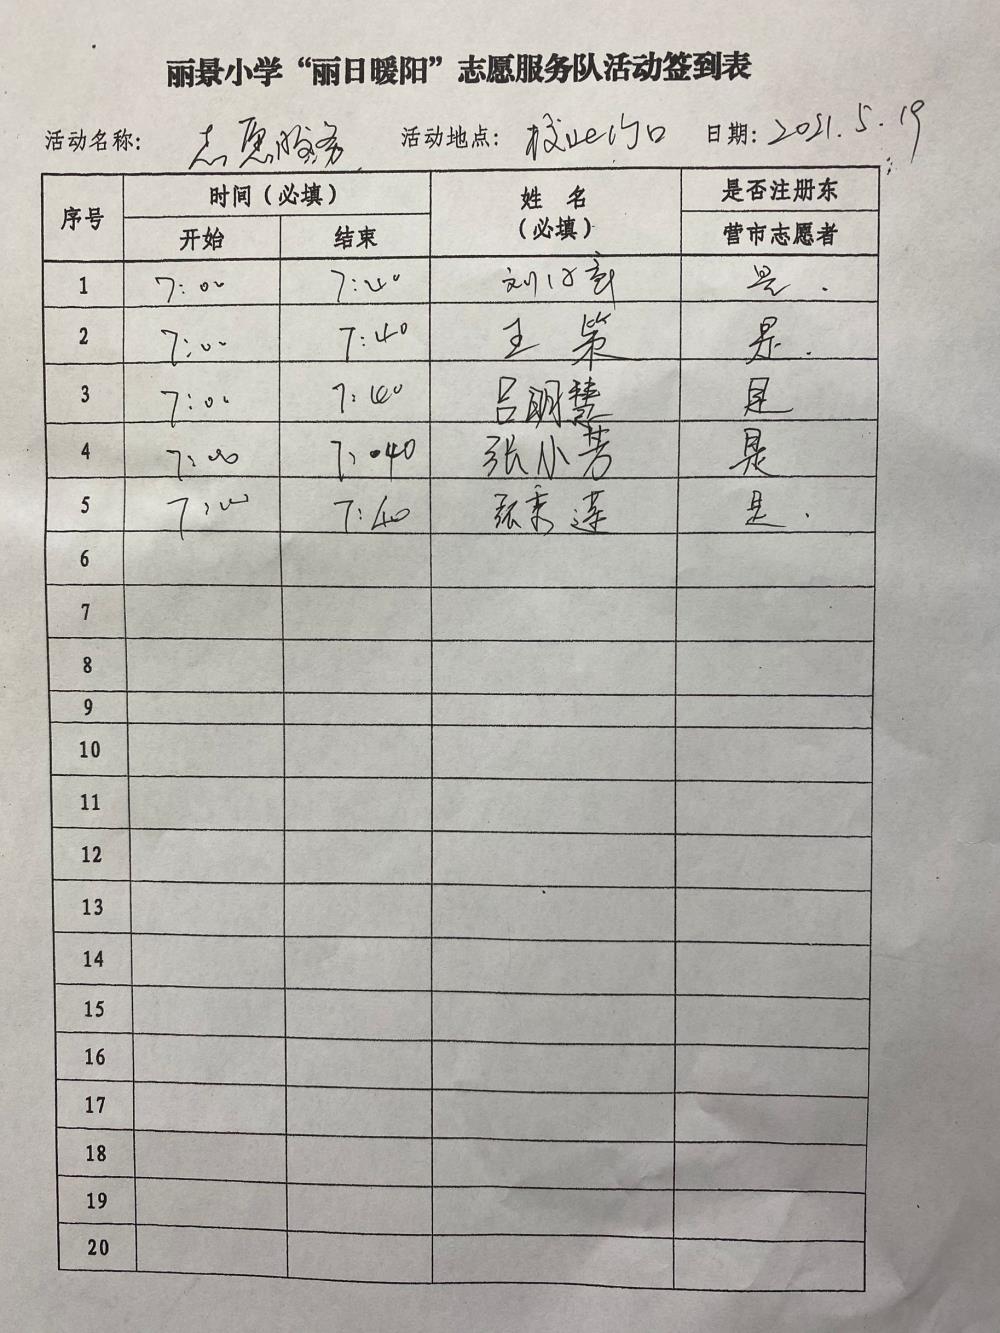 丽景小学“丽日暖阳”志愿服务队活动签到表
活动名称: 志愿服务 活动地点: 校北门口 日期: 2021.5.19
序号 时间(必填) 姓 名(必填) 是否注册东营市志愿者
开始 结束
1 7:00 7:40 刘 是.
2 7:00 7:40 王 策 是.
3 7:00 7:40 吕明慧 是
4 7:00 7:40 张小芳 是
5 7:00 7:40 张秀莲 是.
6
7
8
9
10
11
12
13
14
15
16
17
18
19
20